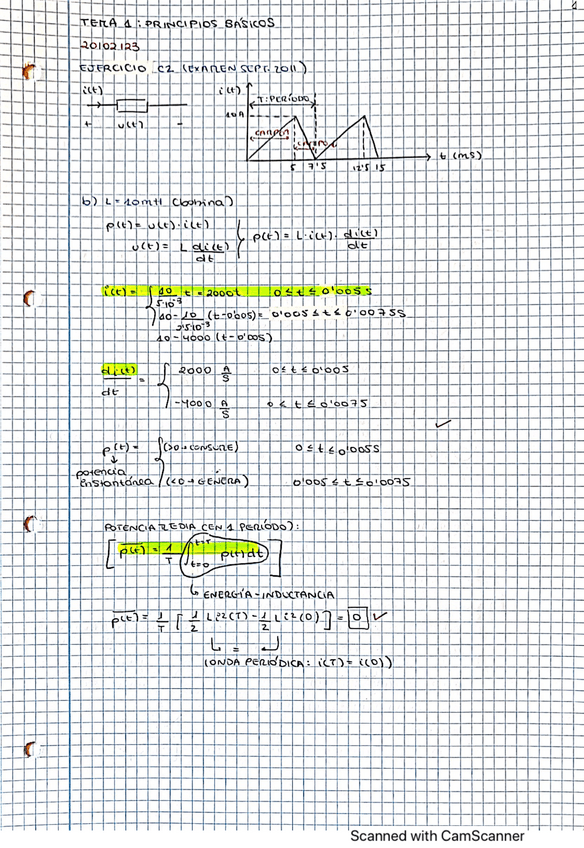 1
TEMA 1: PRINCIPIOS BÁSICOS
20102123
EJERCICIO C2 (EXAMEN SEPT. 2011)
i(t)
+ u(t) -
i(t)
T: PERÍODO
10A
5 7'5 12'5 15 t (ms)
b) L = 10mH (bobina)
p(t) = u(t) · i(t)
u(t) = L di(t)/dt } p(t) = L · i(t) · di(t)/dt
i(t) = { 10/5·10⁻³ t = 2000t 0 ≤ t ≤ 0'005s
10 - 10/2'5·10⁻³ (t-0'005) = 0'005 ≤ t ≤ 0'0075s
10 - 4000 (t-0'005)
di(t)/dt = { 2000 A/s 0 ≤ t ≤ 0'005
-4000 A/s 0 < t ≤ 0'0075
p(t) = { (>0 → CONSUME) 0 ≤ t ≤ 0'005s
↓
potencia
instantánea (<0 → GENERA) 0'005 ≤ t ≤ 0'0075
POTENCIA MEDIA (EN 1 PERÍODO):
[ p(t) = 1/T ∫ t=0 t=T p(t) dt ]
↳ ENERGÍA-INDUCTANCIA
p(t) = 1/T [ 1/2 L i²(T) - 1/2 L i²(0) ] = 0 ✓
=
(ONDA PERIÓDICA: i(T) = i(0))
Scanned with CamScanner